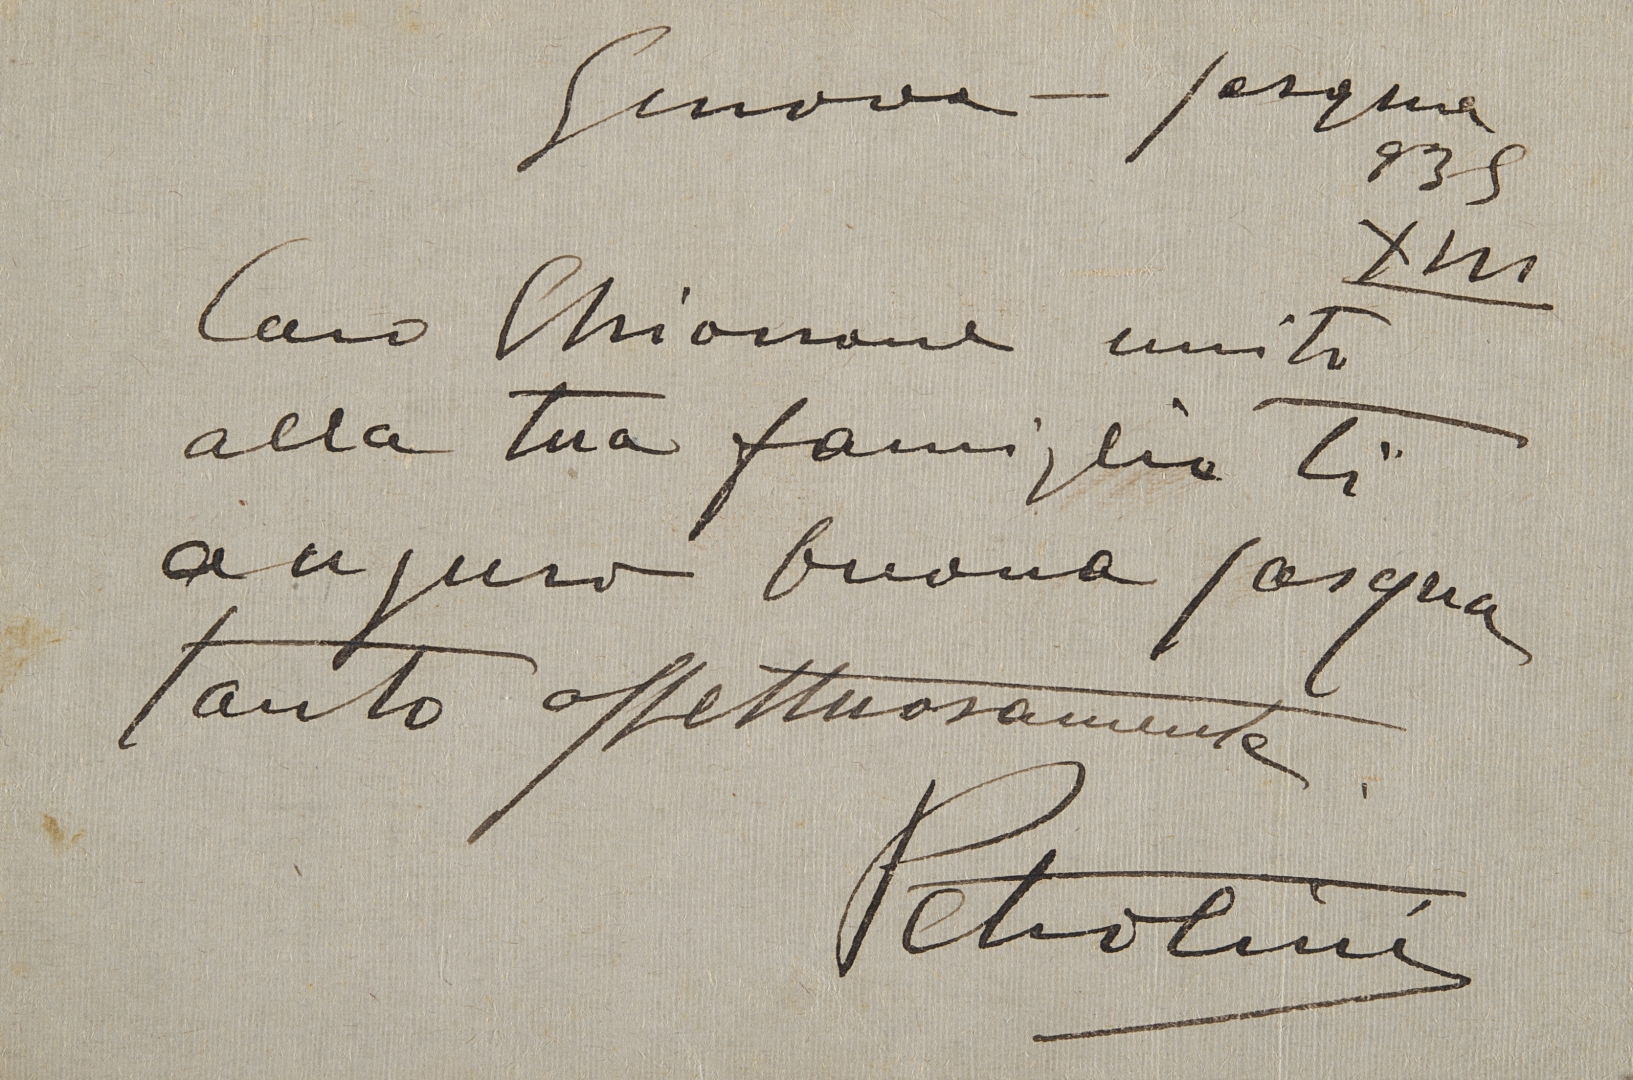 Genova — pasqua
935
XIII
Caro Chiossone unito
alla tua famiglia ti
auguro buona pasqua
tanto affettuosamente
Petrolini